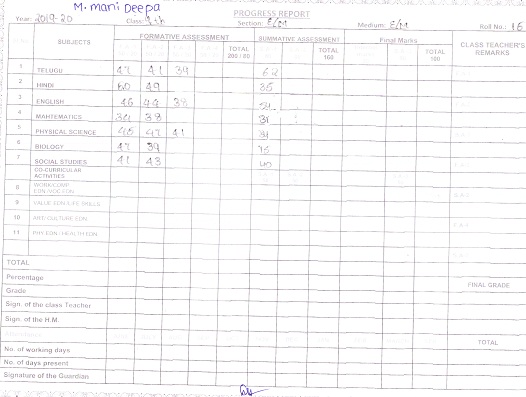 M. mani Deepa
PROGRESS REPORT
Year: 2019-20 Class: Section: E/M Medium: E/M Roll No.: 16
SUBJECTS FORMATIVE ASSESSMENT SUMMATIVE ASSESSMENT Final Marks CLASS TEACHER'S REMARKS
TOTAL 200 / 80 TOTAL 160 TOTAL 100
1 TELUGU 47 41 39 62
2 HINDI 49 35
3 ENGLISH 46 44 38 54
4 MAHTEMATICS 34 38 31
5 PHYSICAL SCIENCE 45 47 41 31
6 BIOLOGY 47 39 15
7 SOCIAL STUDIES 41 43 40
CO-CURRICULAR ACTIVITIES
8 WORK/COMP EDN./VOC EDN
9 VALUE EDN./LIFE SKILLS
10 ART/CULTURE EDN
11 PHY.EDN / HEALTH EDN
TOTAL
Percentage FINAL GRADE
Grade
Sign. of the class Teacher
Sign. of the H.M.
TOTAL
No. of working days
No. of days present
Signature of the Guardian